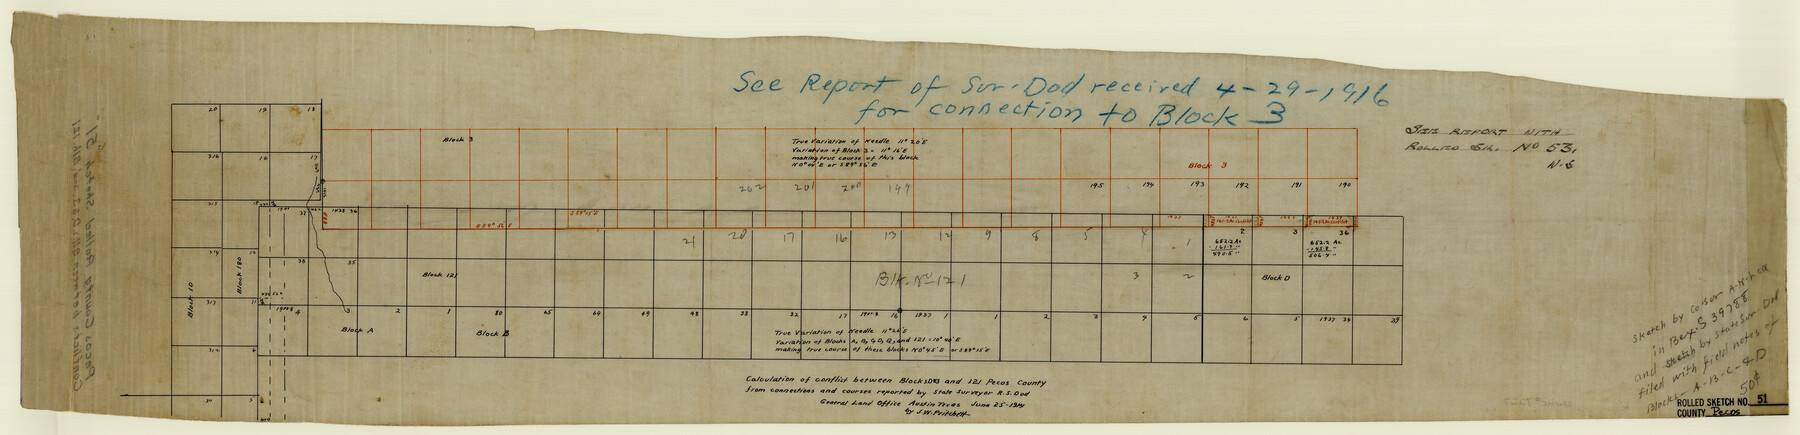 See Report of Sur. Dod received 4-29-1916
for connection to Block 3
SEE REPORT WITH
ROLLED SK. NO 53,
N-S
Block 3
True Variation of Needle 11° 20' E
Variation of Block 3 = 11° 16' E
making true course of this block
Block 3
20 19 18
316 16 17
202 201 200 199
195 194 193 192 191 190
315
37
1938 36
S89°52'E
S89°15'E
2 3 36
652.2 Ac
652.2 Ac
506.4 "
21 20 17 16 13 12 9 8 5 4 1
Block 10
Block 180
38 35
Block 121
Blk. No 121
3 2
Block D
317
4 3 2 1 80 65 64 49 48 33 32 17 16 1937 1 1 2 3 4 5 6 5 1937 34 39
Block A
Block B
True Variation of Needle 11°26'E
Variation of Blocks A, B, C, D, Q, and 121 = 10° 40' E
making true course of these blocks N0°45'E or S89°15'E
Calculation of conflict between Blocks D & 3 and 121 Pecos County
from connections and courses reported by State Surveyor R.S. Dod
General Land Office Austin Texas June 25-1914
by J.W. Pritchett
Pecos County Rolled Sketch 51.
Sketch by Co Sur
in Bex. S 39788
and sketch by State Sur Dod
filed with field notes of
Blocks A-B-C-& D
50¢
ROLLED SKETCH NO. 51
COUNTY Pecos